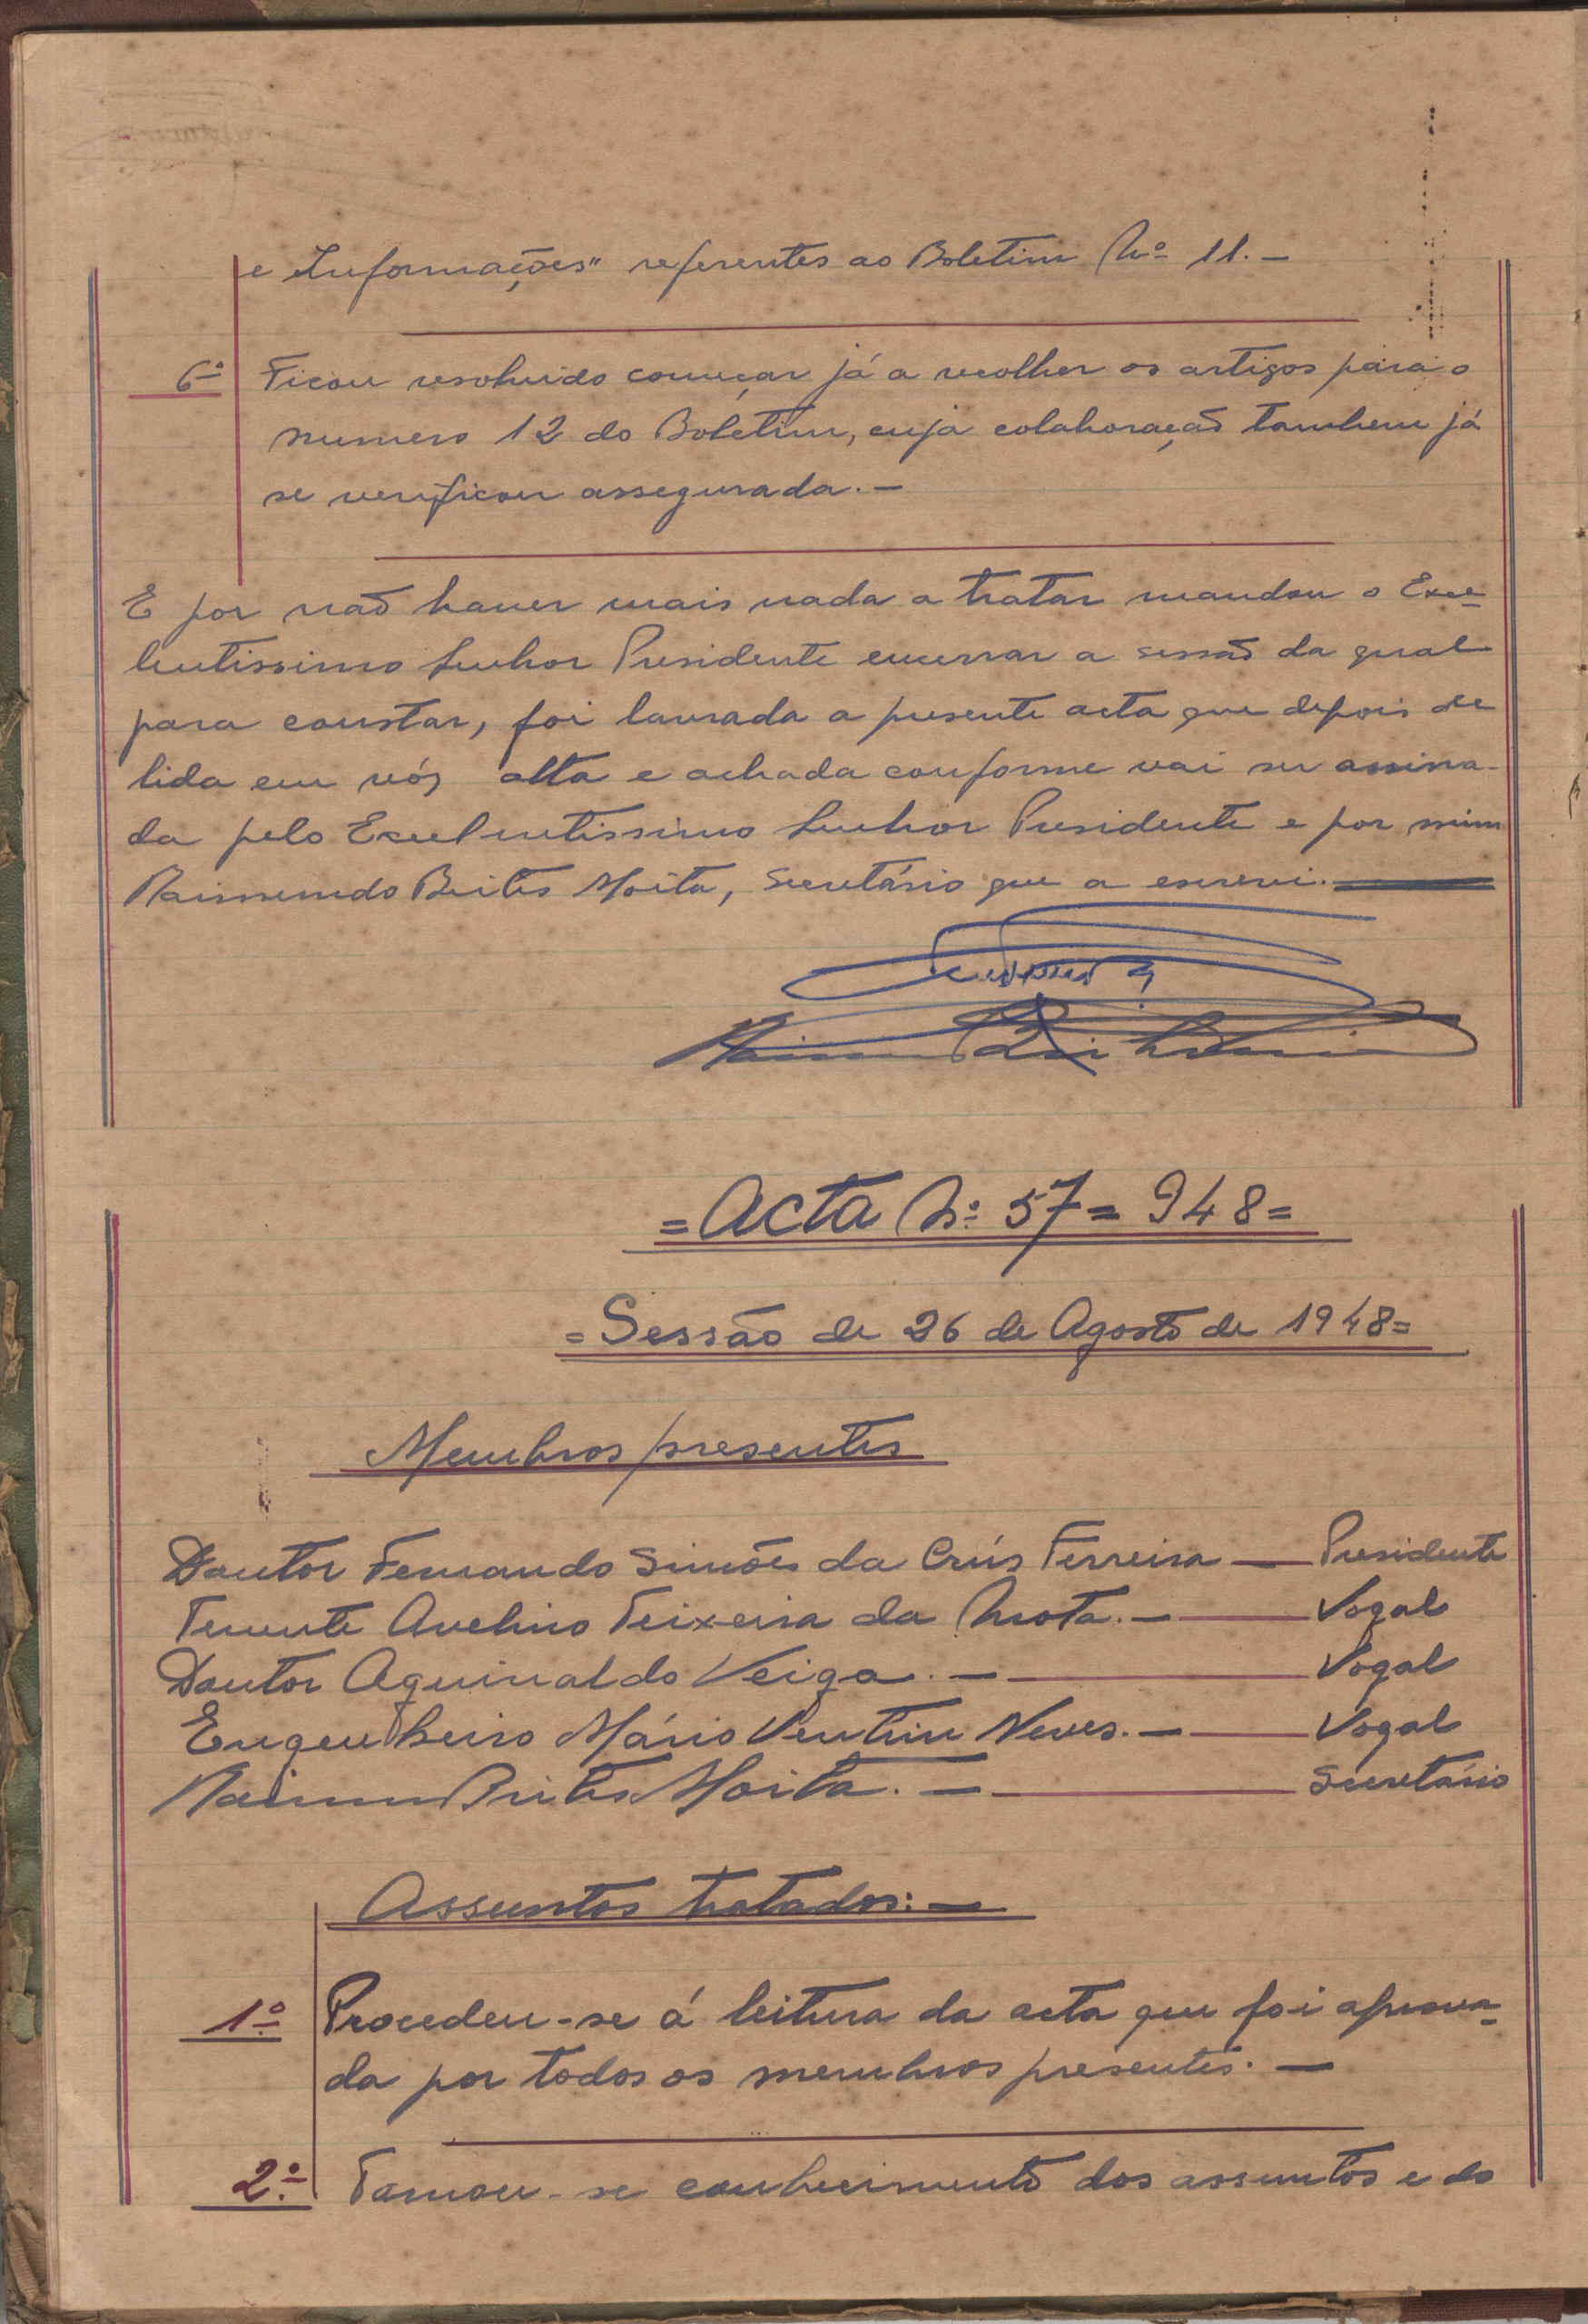 e Informações" referentes ao Boletim Nº 11. —
6º Ficou resolvido começar já a recolher os artigos para o
numero 12 do Boletim, cuja colaboração tambem já
se verificou assegurada. —
E por não haver mais nada a tratar mandou o Exce-
lentissimo Senhor Presidente encerrar a sessão da qual
para constar, foi lavrada a presente acta que depois de
lida em vóz alta e achada conforme vai ser assina-
da pelo Excelentissimo Senhor Presidente e por mim
Raimundo Brites Moita, Secretário que a escrevi.
= Acta Nº 57 = 948 =
= Sessão de 26 de Agosto de 1948 =
Membros presentes
Doutor Fernando Simões da Crús Ferreira — Presidente
Tenente Avelino Teixeira da Mota. — Vogal
Doutor Aguinaldo Veiga. — Vogal
Engenheiro Mário Ventim Neves. — Vogal
Raimundo Brites Moita. — Secretário
Assuntos tratados: —
1º Procedeu-se á leitura da acta que foi aprova-
da por todos os membros presentes. —
2º Tomou-se conhecimento dos assuntos e do